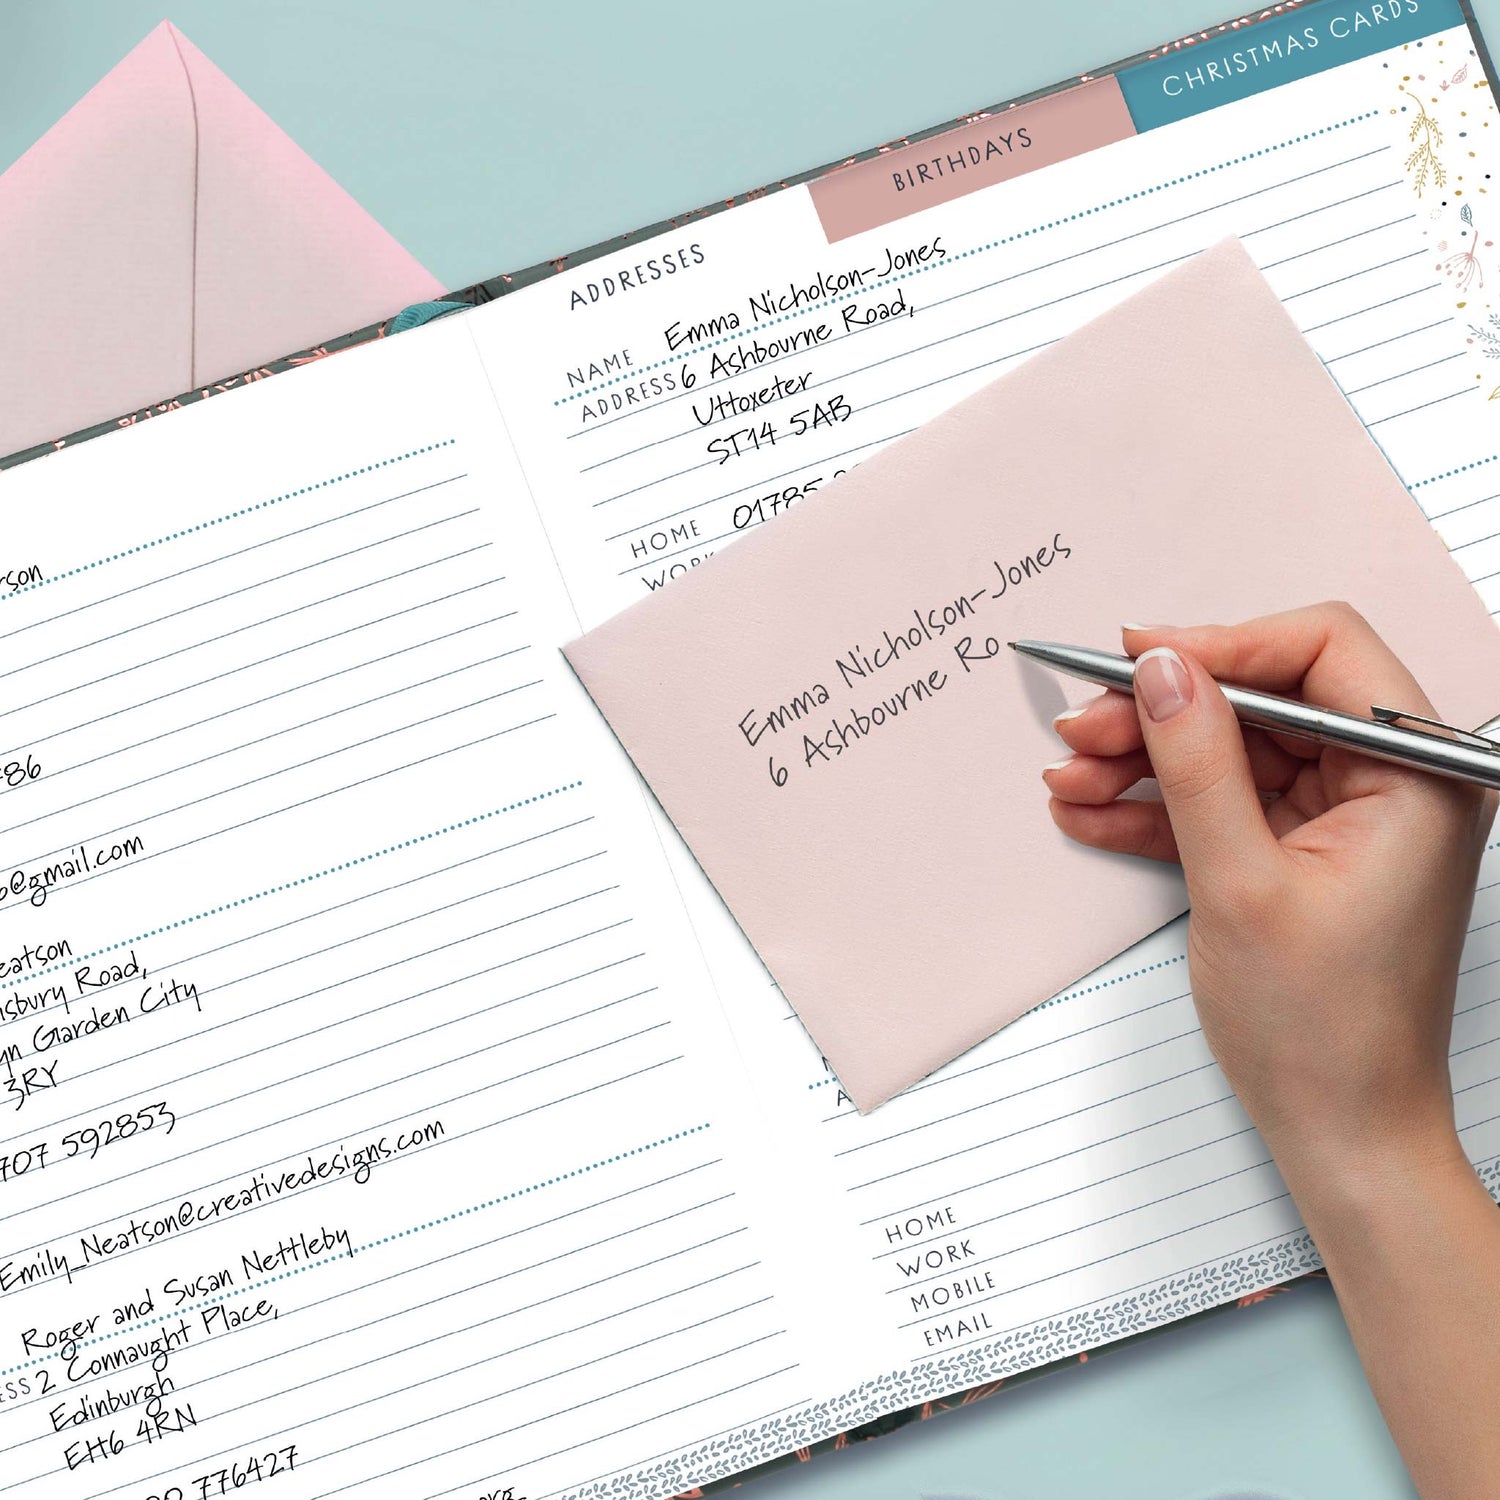 CHRISTMAS CARDS
BIRTHDAYS
ADDRESSES
NAME Emma Nicholson-Jones
ADDRESS 6 Ashbourne Road,
Uttoxeter
ST14 5AB
HOME 01785
WORK
Emma Nicholson-Jones
6 Ashbourne Ro
HOME
WORK
MOBILE
EMAIL
rson
86
@gmail.com
eatson
nsbury Road,
yn Garden City
3RY
707 592853
Emily_Neatson@creativedesigns.com
Roger and Susan Nettleby
ESS 2 Connaught Place,
Edinburgh
EH6 4RN
776427